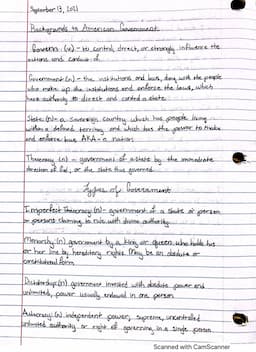 September 13, 2021
Backgrounds to American Government
Govern: (v) - to control, direct, or strongly influence the
actions and conduct of.
Government (n) - the institutions and laws, along with the people
who make up the institutions and enforce the laws, which
have authority to direct and control a state.
State: (n) - a sovereign country which has people living
within a defined territory, and which has the power to make
and enforce laws. AKA - a nation
Theocracy (n) - government of a state by the immediate
direction of God, or the state thus governed.
Types of Government
Imperfect Theocracy (n) - government of a state by person
or persons claiming to rule with divine authority.
Monarchy (n) government by a king or queen who holds his
or her line by hereditary rights. May be an absolute or
constitutional form.
Dictatorship (n) government invested with absolute power and
unlimited, power usually endowed in one person.
Autocracy (n) independent power, supreme, uncontrolled
unlimited authority or right of governing in a single person.
Scanned with CamScanner